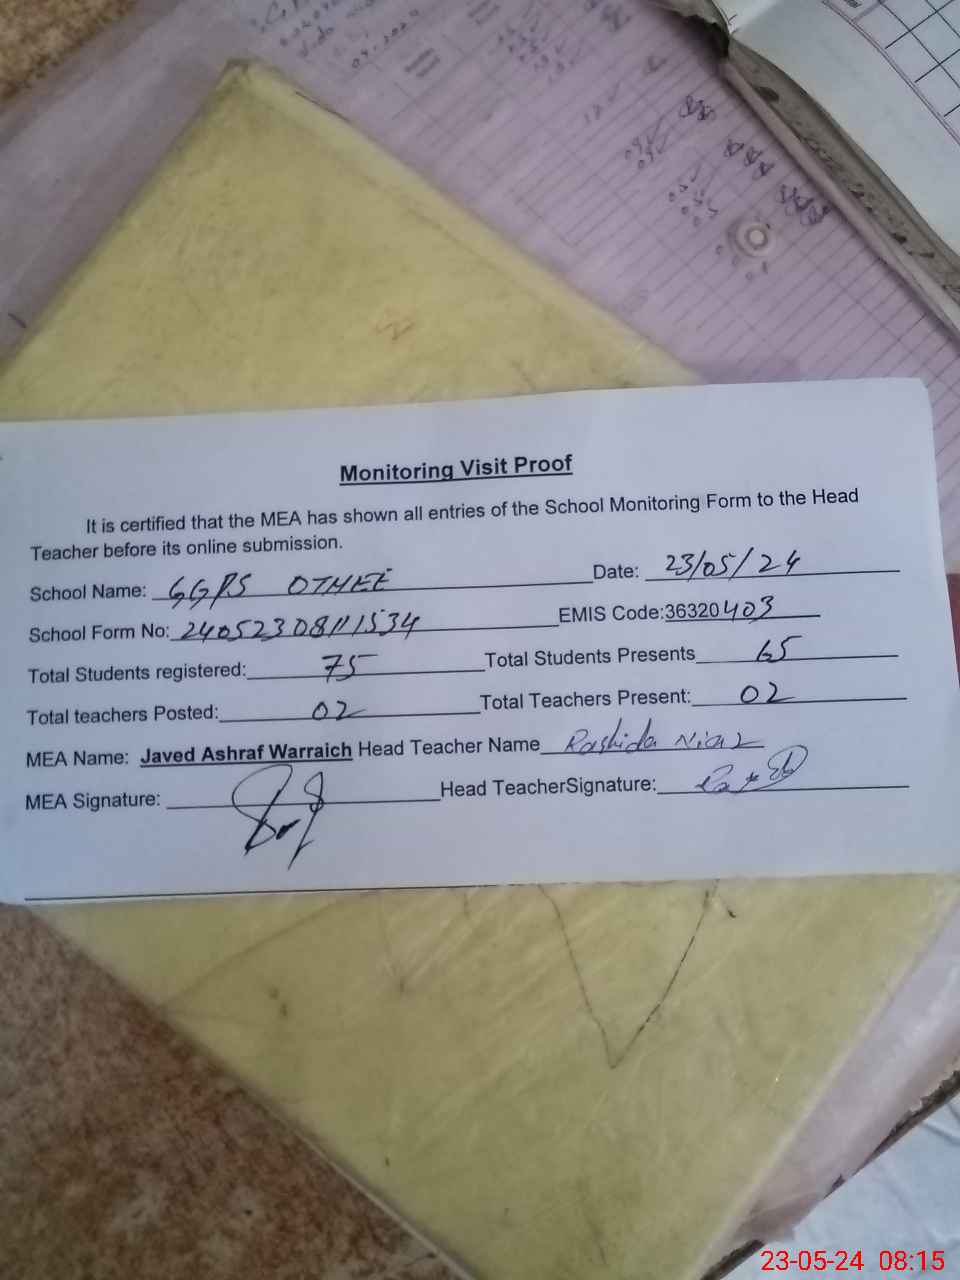 Monitoring Visit Proof
It is certified that the MEA has shown all entries of the School Monitoring Form to the Head
Teacher before its online submission.
School Name: GGPS OTHEE Date: 23/05/24
School Form No: 24052308111534 EMIS Code:36320403
Total Students registered: 75 Total Students Presents 65
Total teachers Posted: 02 Total Teachers Present: 02
MEA Name: Javed Ashraf Warraich Head Teacher Name Rashida Niaz
MEA Signature: Head TeacherSignature:
23-05-24 08:15